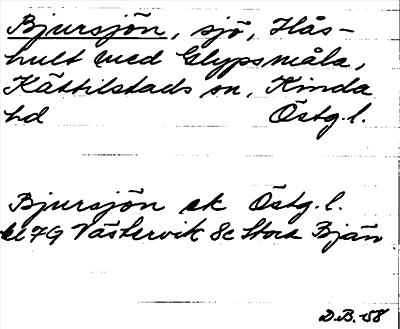 Bjursjön, sjö, Hås-
hult med Glypsmåla,
Kättilstads sn, Kinda
hd Östg.l.
Bjursjön ek Östg.l.
bl 7G Västervik 8c Stora Bjän
D.B.-58